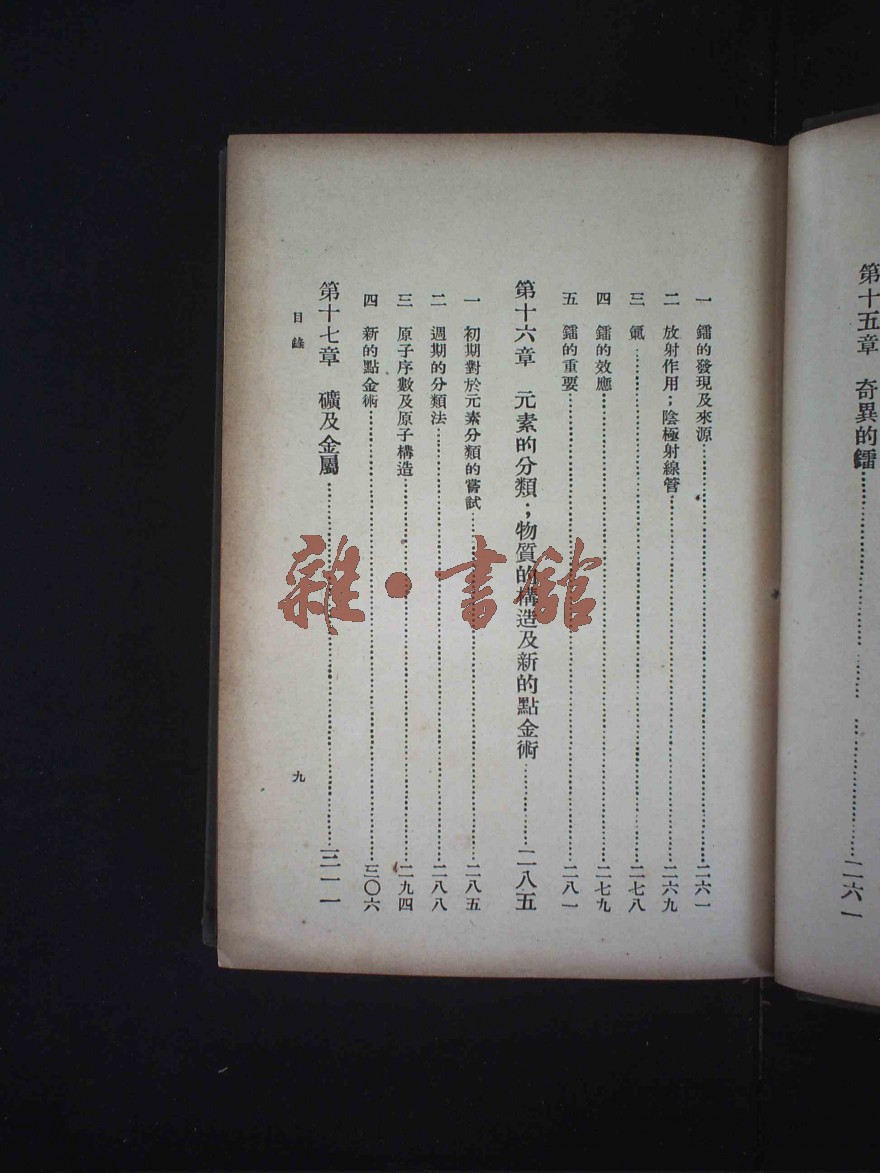 第十五章　奇異的鐳……二六一
一　鐳的發現及來源……二六一
二　放射作用；陰極射線管……二六九
三　氡……二七八
四　鐳的效應……二七九
五　鐳的重要……二八一
第十六章　元素的分類；物質的構造及新的點金術……二八五
一　初期對於元素分類的嘗試……二八五
二　週期的分類法……二八八
三　原子序數及原子構造……二九四
四　新的點金術……三〇六
第十七章　礦及金屬……三一一
目錄　九
雜・書館